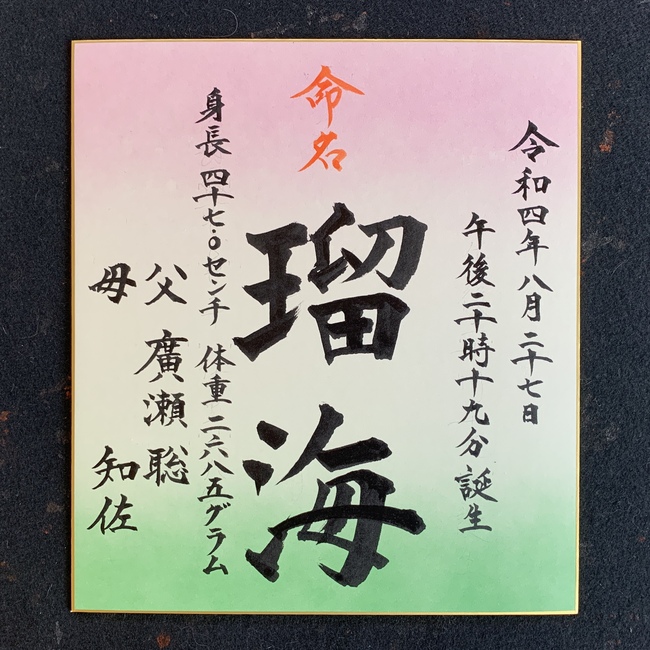 令和四年八月二十七日
午後二十時十九分誕生
命名
瑠海
身長 四十七.〇センチ 体重 二六八五グラム
父 廣瀬 聡
母 知佐